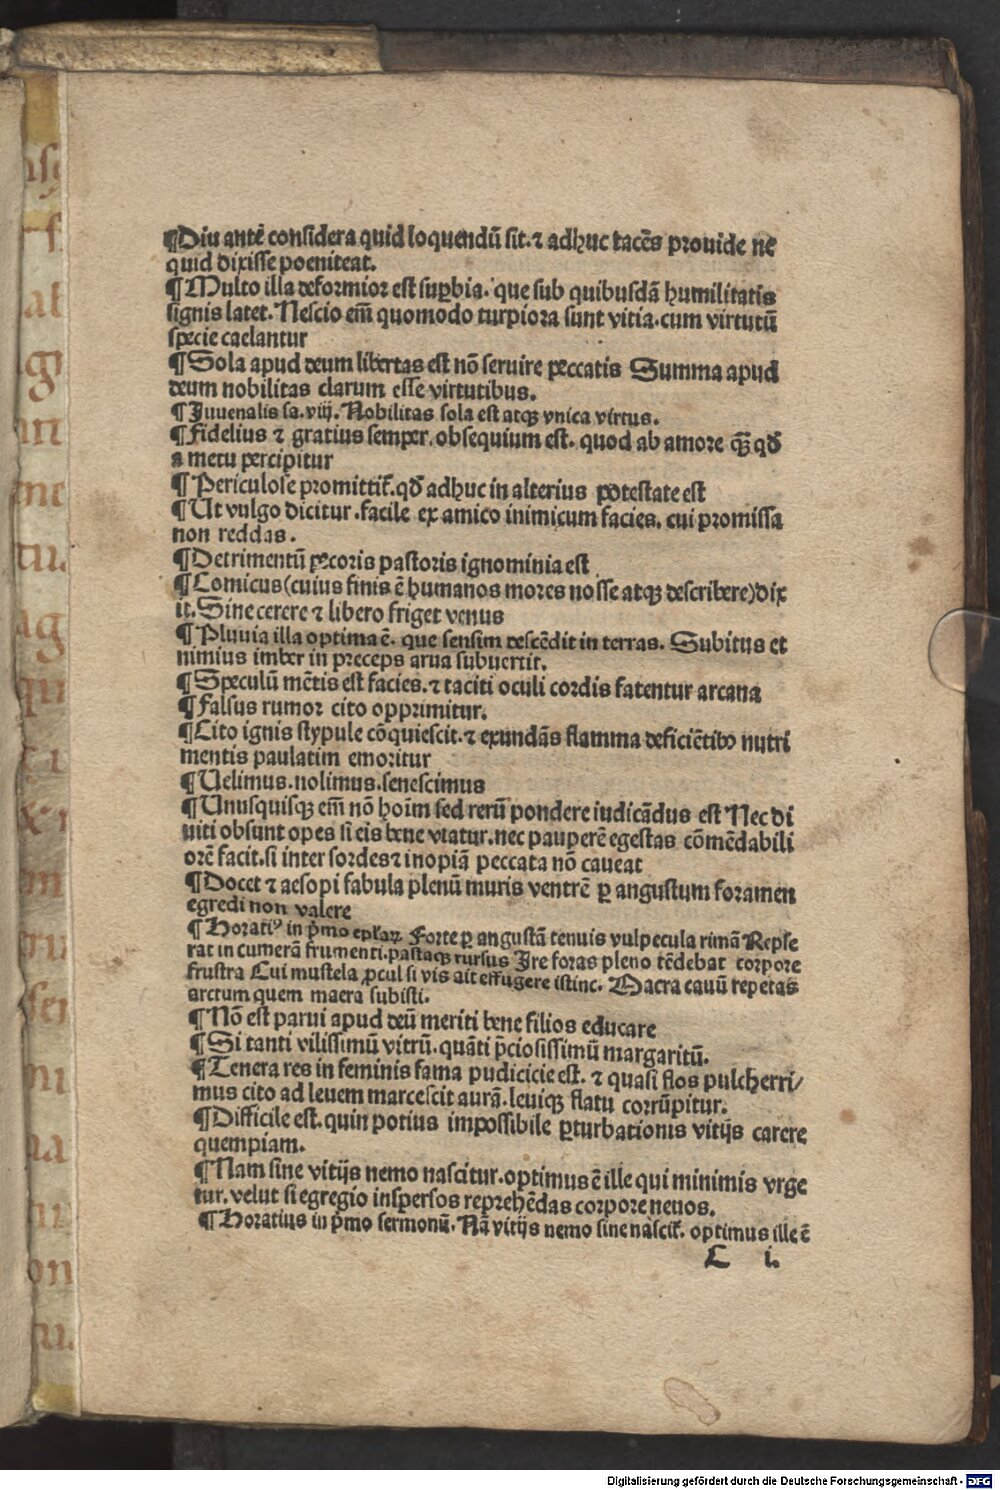 ¶Diu antẽ considera quid loquendũ sit. ⁊ adhuc tacẽs prouide ne
quid dixisse poeniteat.
¶Multo illa deformior est suꝑbia. que sub quibusdã humilitatis
signis latet. Nescio em̃ quomodo turpiora sunt vitia. cum virtutũ
specie caelantur
¶Sola apud deum libertas est nõ seruire peccatis Summa apud
deum nobilitas clarum esse virtutibus.
¶Juuenalis sa. viij. Nobilitas sola est atqꝫ vnica virtus.
¶Fidelius ⁊ gratius semper. obsequium est. quod ab amore qꝫ̃ qđ
a metu percipitur
¶Periculose promittit̃. qđ adhuc in alterius potestate est
¶Ut vulgo dicitur. facile ex amico inimicum facies. cui promissa
non reddas.
¶Detrimentũ pecoris pastoris ignominia est
¶Comicus (cuius finis ẽ humanos mores nosse atqꝫ describere) dix
it. Sine cerere ⁊ libero friget venus
¶Pluuia illa optima ẽ. que sensim descẽdit in terras. Subitus et
nimius imber in preceps arua subuertit.
¶Speculũ mẽtis est facies. ⁊ taciti oculi cordis fatentur arcana
¶Falsus rumor cito opprimitur.
¶Cito ignis stypule cõquiescit. ⁊ exundãs flamma deficiẽtibꝰ nutri
mentis paulatim emoritur
¶Uelimus. nolimus. senescimus
¶Unusquisqꝫ em̃ nõ hoĩm sed rerũ pondere iudicãdus est Nec di
uiti obsunt opes si eis bene vtatur. nec pauperẽ egestas cõmẽdabili
orẽ facit. si inter sordes ⁊ inopiã peccata nõ caueat
¶Docet ⁊ aesopi fabula plenũ muris ventrẽ ꝑ angustum foramen
egredi non valere
¶Horatiꝰ in p̃mo epl̃aꝝ. Forte ꝑ angustã tenuis vulpecula rimã Repse
rat in cumerã frumenti. pastaqꝫ rursus Ire foras pleno tẽdebat corpore
frustra Cui mustela ꝓcul si vis ait effugere istinc. Macra cauũ repetas
arctum quem macra subisti.
¶Nõ est parui apud deũ meriti bene filios educare
¶Si tanti vilissimũ vitrũ. quãti p̃ciosissimũ margaritũ.
¶Tenera res in feminis fama pudicicie est. ⁊ quasi flos pulcherri/
mus cito ad leuem marcescit aurã. leuiqꝫ flatu corrũpitur.
¶Difficile est. quin potius impossibile ꝑturbationis vitijs carere
quempiam.
¶Nam sine vitijs nemo nascitur. optimus ẽ ille qui minimis vrge
tur. velut si egregio inspersos reprehẽdas corpore neuos.
¶Horatius in p̃mo sermonũ. Nã vitijs nemo sine nascit̃. optimus ille ẽ
C i.
Digitalisierung gefördert durch die Deutsche Forschungsgemeinschaft - DFG